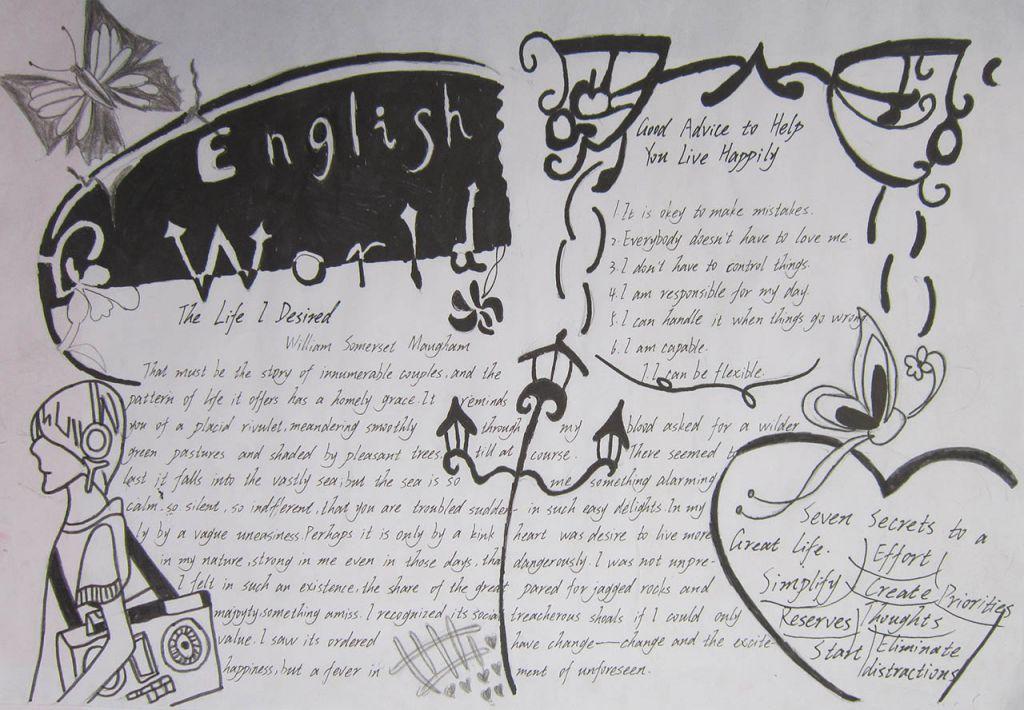 English
World
The Life I Desired
William Somerset Maugham
That must be the story of innumerable couples, and the
pattern of life it offers has a homely grace. It reminds
you of a placid rivulet, meandering smoothly through
green pastures and shaded by pleasant trees, till at
last it falls into the vastly sea; but the sea is so
calm, so silent, so indifferent, that you are troubled sudden-
ly by a vague uneasiness. Perhaps it is only by a kink
in my nature, strong in me even in those days, that
I felt in such an existence, the share of the great
majoyty, something amiss. I recognized its social
value. I saw its ordered
happiness, but a fever in
my blood asked for a wilder
course. There seemed to
me something alarming
in such easy delights. In my
heart was desire to live more
dangerously. I was not unpre-
pared for jagged rocks and
treacherous shoals if I could only
have change——change and the excite-
ment of unforeseen.
Good Advice to Help
You Live Happily
1. It is okey to make mistakes.
2. Everybody doesn't have to love me.
3. I don't have to control things.
4. I am responsible for my day.
5. I can handle it when things go wrong
6. I am capable.
7. I can be flexible.
Seven Secrets to a
Great Life.
Effort
Simplify
Create Priorities
Reserves
Thoughts
Start
Eliminate
distractions